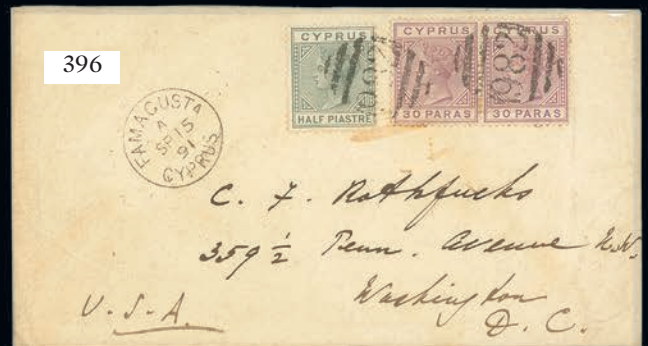 396
CYPRUS
HALF PIASTRE
CYPRUS
30 PARAS
CYPRUS
30 PARAS
982
982
FAMAGUSTA
A
SP 15
91
CYPRUS
C. F. Rothfucks
359 ½ Penn. Avenue N.W.
Washington
D. C.
U.S.A.